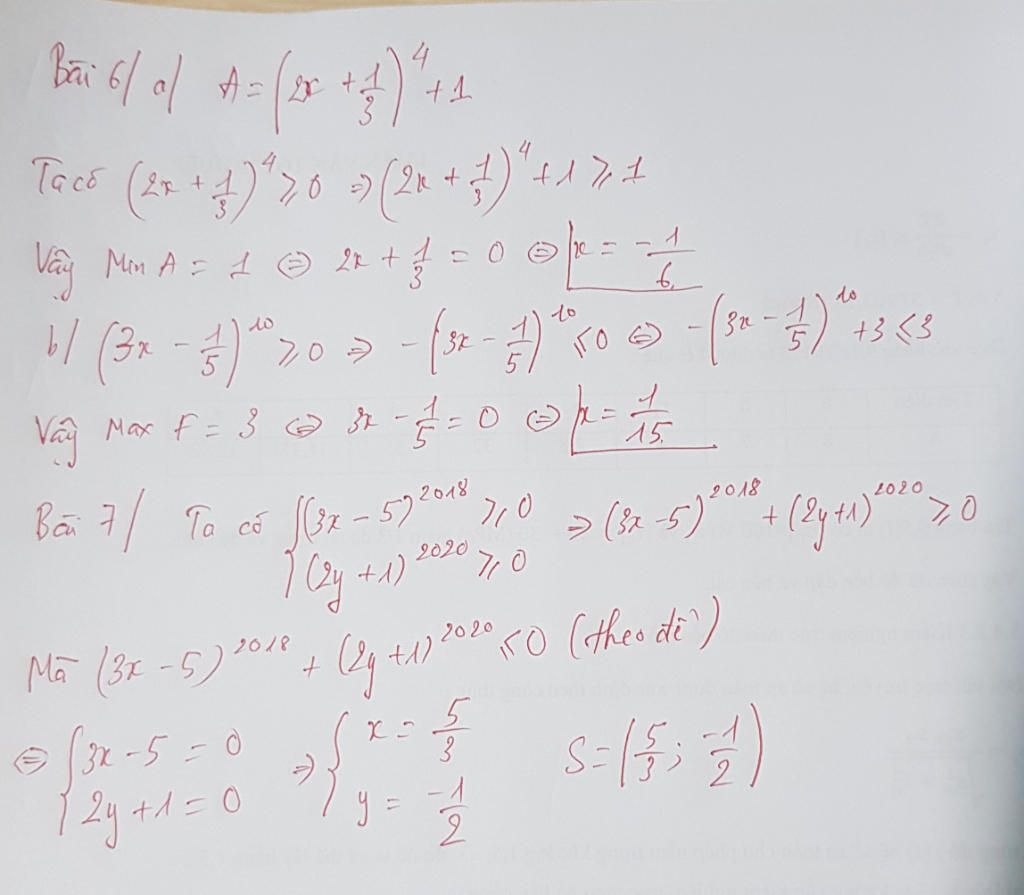 Bài 6/ a/ A = (2x + 1/3)^4 + 1
Ta có (2x + 1/3)^4 ⩾ 0 ⇒ (2x + 1/3)^4 + 1 ⩾ 1
Vậy Min A = 1 ⇔ 2x + 1/3 = 0 ⇔ x = -1/6
b/ (3x - 1/5)^10 ⩾ 0 ⇒ -(3x - 1/5)^10 ⩽ 0 ⇔ -(3x - 1/5)^10 + 3 ⩽ 3
Vậy Max F = 3 ⇔ 3x - 1/5 = 0 ⇔ x = 1/15
Bài 7/ Ta có { (3x - 5)^2018 ⩾ 0 ⇒ (3x - 5)^2018 + (2y + 1)^2020 ⩾ 0
(2y + 1)^2020 ⩾ 0
Mà (3x - 5)^2018 + (2y + 1)^2020 ⩽ 0 (theo đề)
⇔ { 3x - 5 = 0 ⇒ { x = 5/3 S = (5/3; -1/2)
2y + 1 = 0 y = -1/2